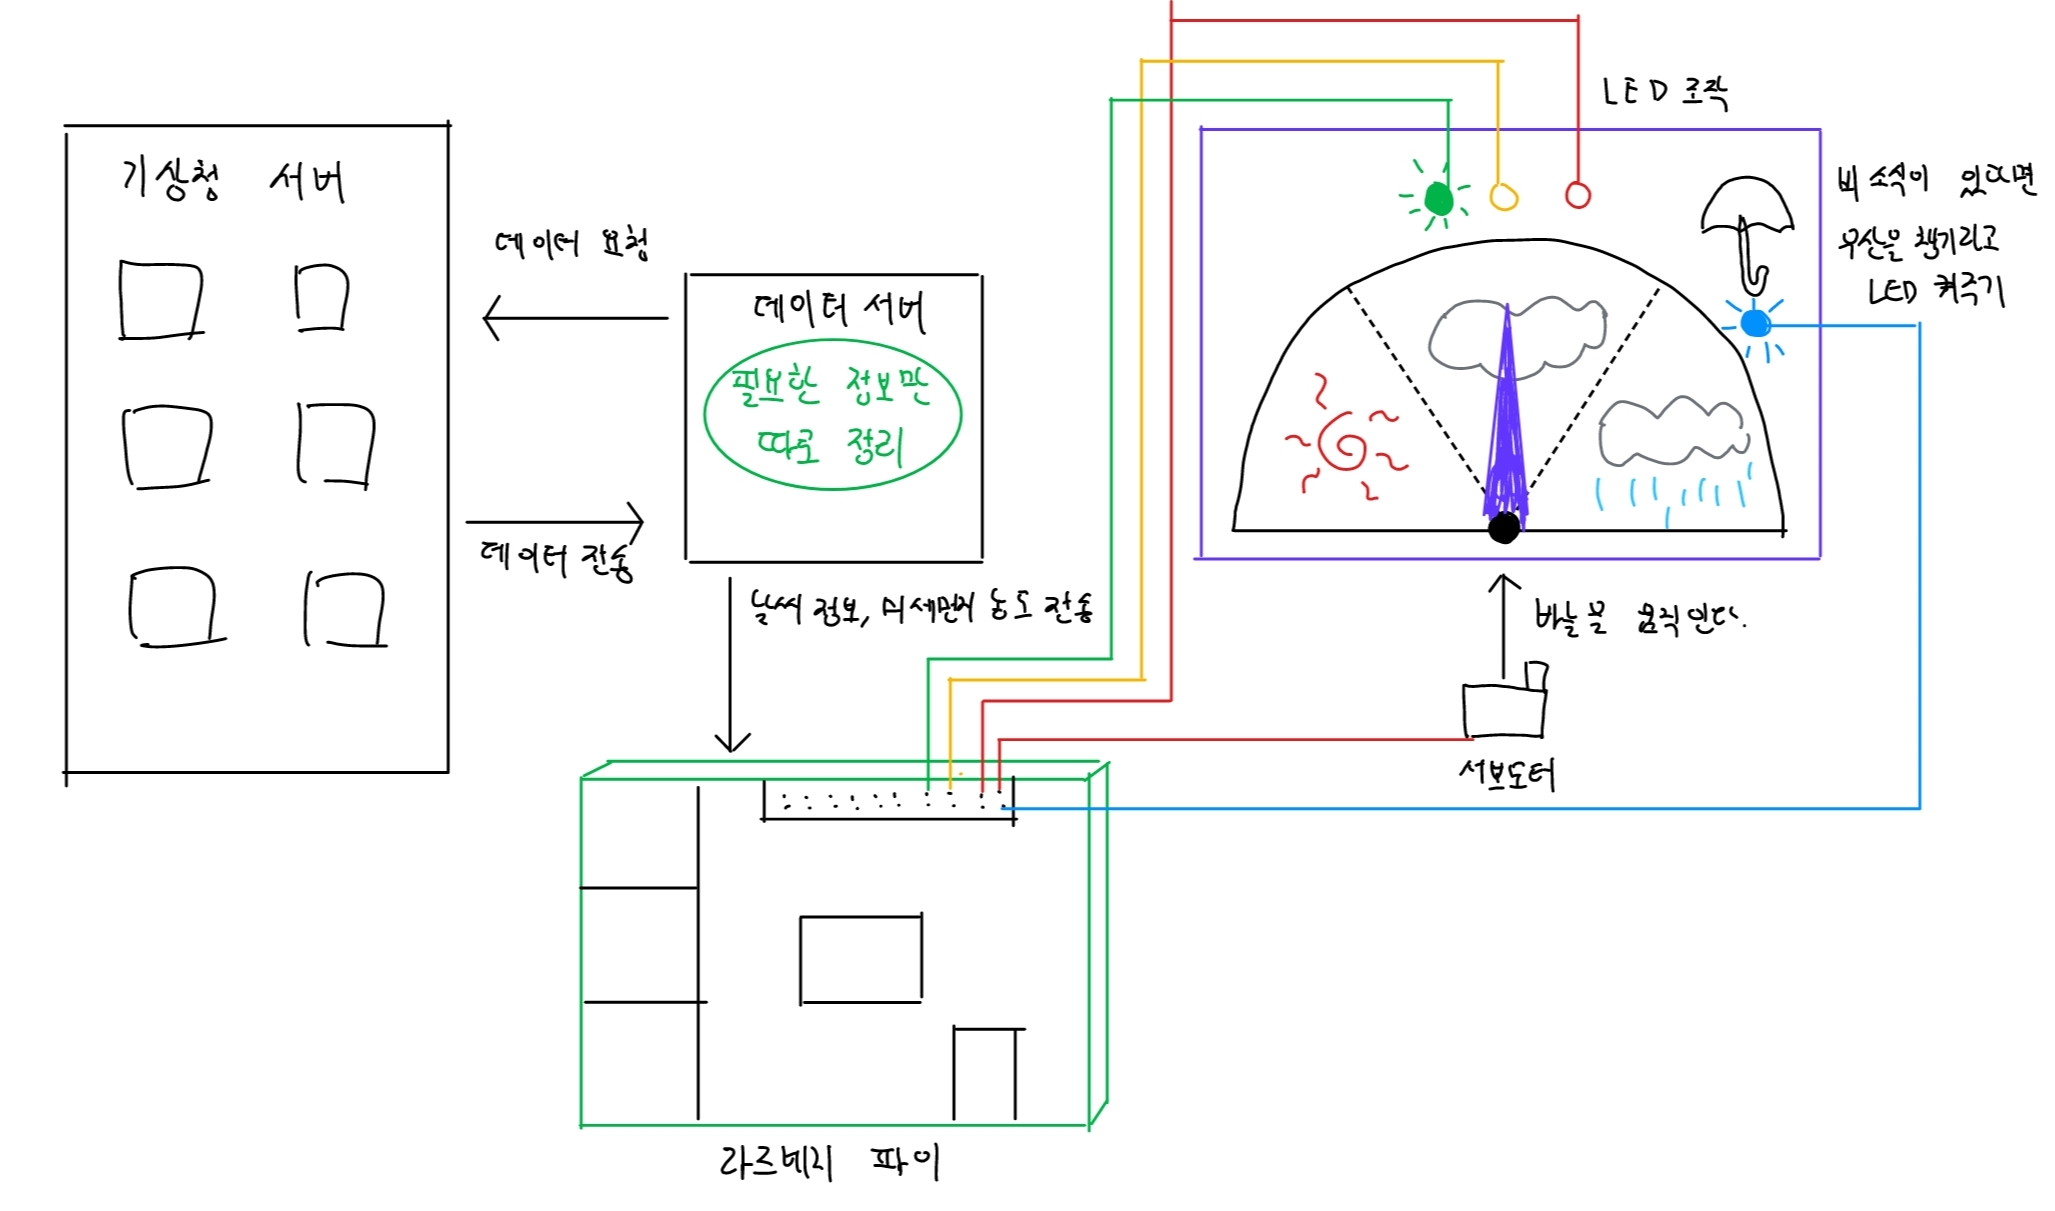 기상청 서버
데이터 요청
데이터 전송
데이터 서버
필요한 정보만
따로 정리
날씨 정보, 미세먼지 농도 전송
라즈베리 파이
LED 조작
비 소식이 있다면
우산을 챙기라고
LED 켜주기
바늘을 움직인다.
서보모터